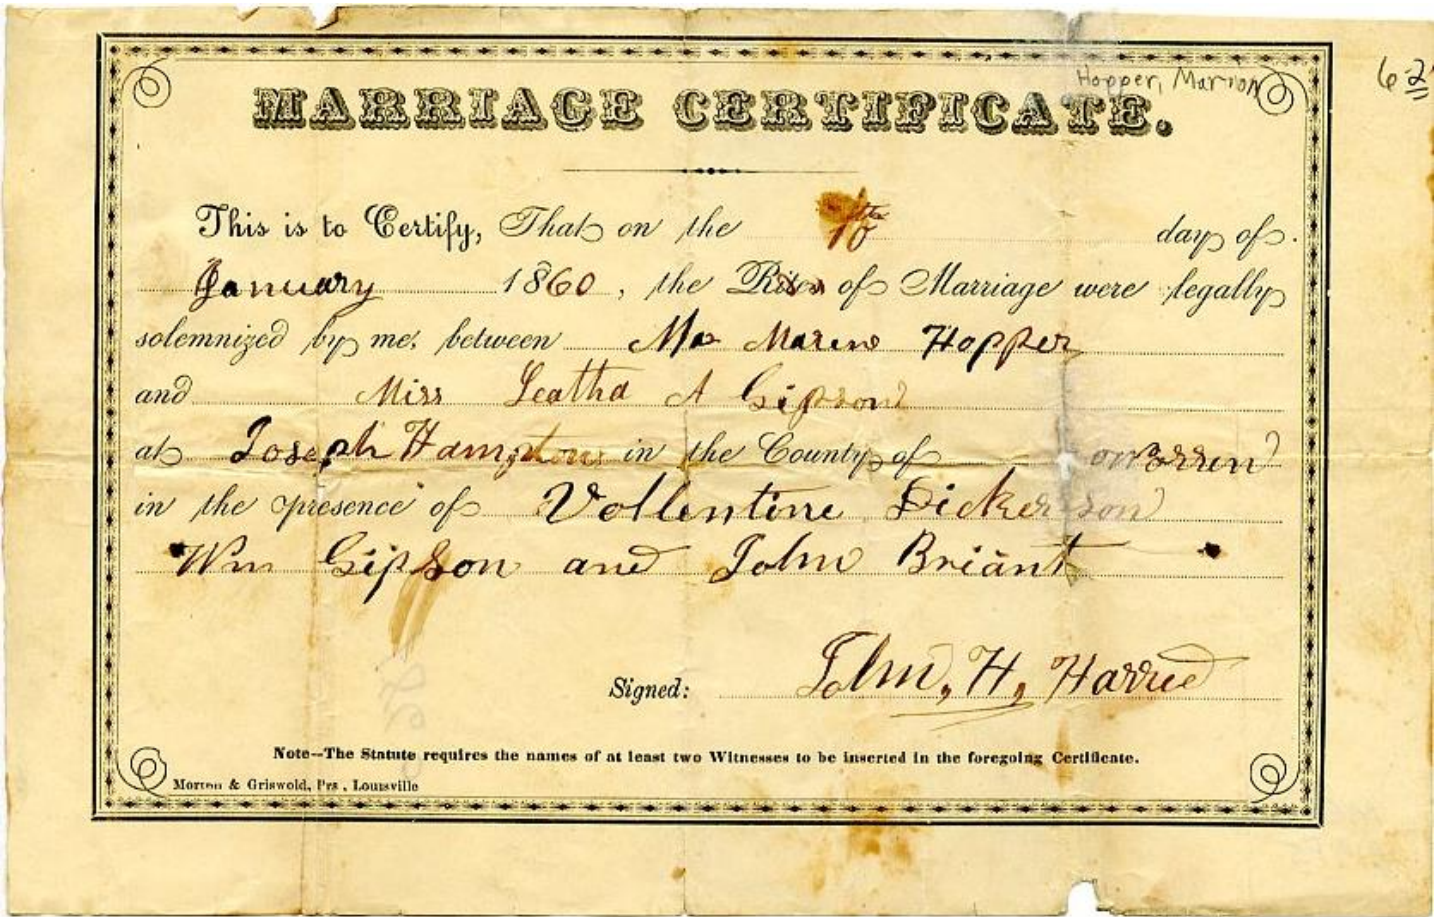 Hopper, Marrion
6-2
MARRIAGE CERTIFICATE.
This is to Certify, That on the 10th day of
January 1860, the Rites of Marriage were legally
solemnized by me, between Mr Marion Hopper
and Miss Leatha A Gipson
at Joseph Hamptons in the County of Warren
in the presence of Vollentine Dickerson
Wm Gipson and John Briant
Signed: John, H,
Note--The Statute requires the names of at least two Witnesses to be inserted in the foregoing Certificate.
Morton & Griswold, Prs, Louisville